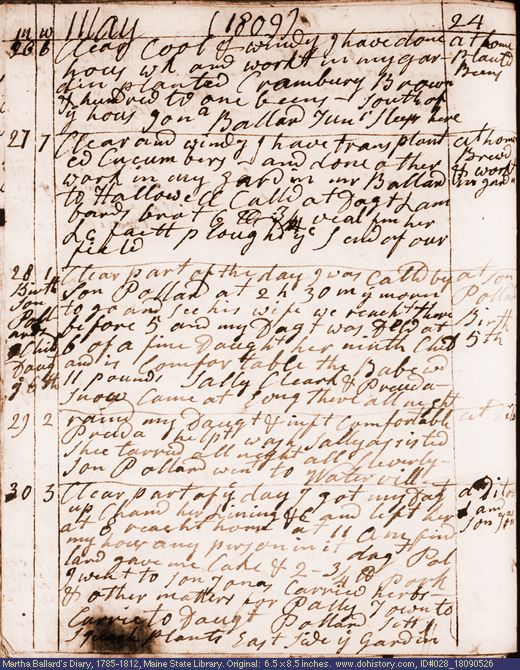 May (1809) 24
m w
26 6 Clear Cool & windy I have done at home
hous wk and workt in my gar Plantd
din planted Crambury Brown Beens
& hundred to one beens - South of
ye hous Jona Ballard Junr Sleeps here
27 7 Clear and windy I have transplant at home
ed Cucumbers - and done other Brewd
work in my gardin mr Ballard & workt
to Hallowell Calld at Dagt Lam in gardn
bards brot 6 lb 3/4 veal him her
ye S end of our
field
28 1 Clear part of the day I was Calld by at son
Birth son Pollard at 2 h 30 m morn Pollards
Son to go and see his wife we reacht there Birth
Pollards before 5 and my Dagt was Deld at 5th
6 of a fine Daught her ninth Child
and is Comfortable the Babe wd
11 pounds Sally Cleark &
Snow Came at Song there all night
29 2 rainy my Daugt & inft Comfortable at Dito
helpt wash Sally assisted
Shee tarried all night all Cleverly -
Son Pollard went to Waterville
30 3 Clear part of ye day I got my Dagt at Ditos
up Changd her Lining &C and left her & am
at 8 reacht home at 11 am find Son Jonas
my hous any person in it dagt Pol
lard gave me Cake & 2 - 3/4 lb Pork
I went to son Jonas Carried herbs -
& other matters for Pally Town to
Carrie to Daugt Pollard Sett
Squash plants East side ye Gardin
Martha Ballard's Diary, 1785-1812, Maine State Library. Original: 6.5 x 8.5 inches. www.dohistory.com, ID#028_18090526